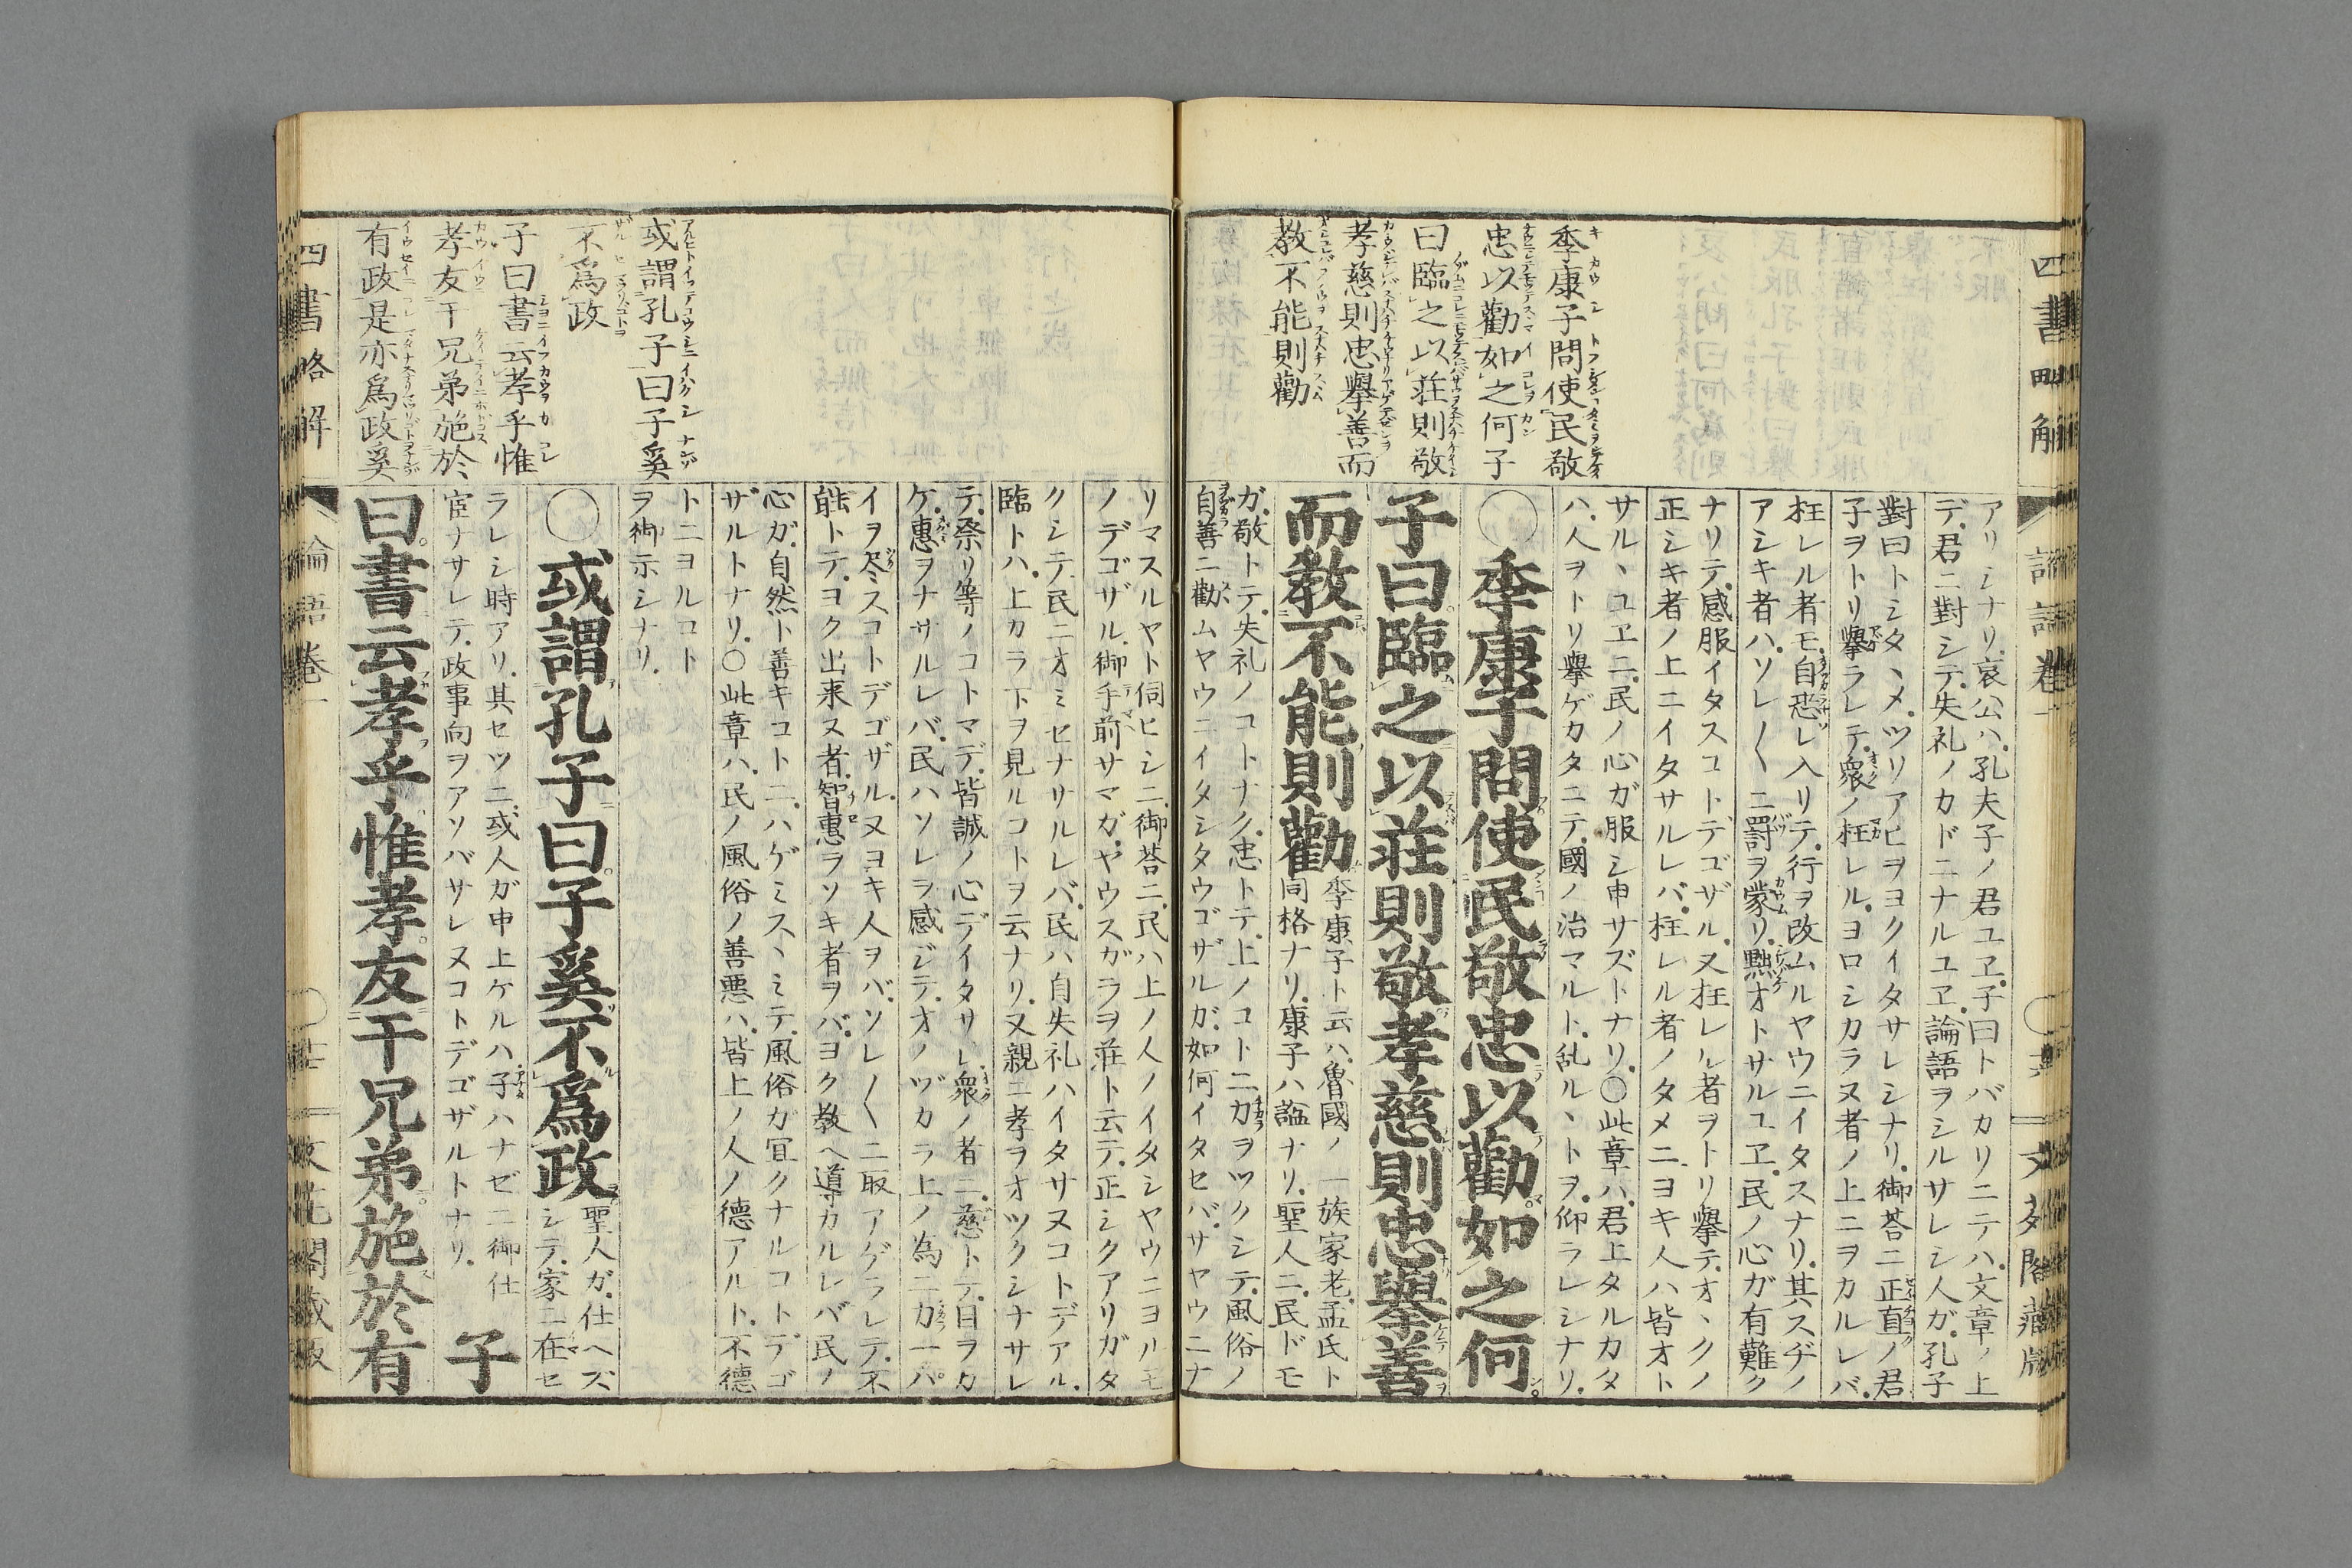 四書略解
論語卷一
季康子問使民敬
忠以勸如之何子
曰臨之以莊則敬
孝慈則忠擧善而
教不能則勸
アリシナリ哀公ハ孔夫子ノ君ユヱ子曰トバカリニテハ文章ノ上
デ君ニ對シテ失礼ノカドニナルユヱ論語ヲシルサレシ人ガ孔子
對曰トシタヽメツリアヒヲヨクイタサレシナリ御荅ニ正直ノ君
子ヲトリ擧ラレテ衆ノ枉レルヨロシカラヌ者ノ上ニヲカルレバ
枉レル者モ自恐レ入リテ行ヲ改ムルヤウニイタスナリ其スヂノ
アシキ者ハソレ〱ニ罸ヲ蒙リ黜オトサルユヱ民ノ心ガ有難ク
ナリテ感服イタスコトデゴザル又枉レル者ヲトリ擧テオヽクノ
正シキ者ノ上ニイタサルレバ枉レル者ノタメニヨキ人ハ皆オト
サルヽユヱニ民ノ心ガ服シ申サズトナリ〇此章ハ君上タルカタ
ハ人ヲトリ擧ゲカタニテ國ノ治マルト乱ルヽトヲ仰ラレシナリ
〇季康子問使民敬忠以勸如之何
子曰臨之以莊則敬孝慈則忠擧善
而教不能則勸
季康子ト云ハ魯國ノ一族家老孟氏ト
同格ナリ康子ハ謚ナリ聖人ニ民ドモ
ガ敬トテ失礼ノコトナク忠トテ上ノコトニ力ヲツクシテ風俗ノ
自善ニ勸ムヤウニイタシタウゴザルガ如何イタセバサヤウニナ
或謂孔子曰子奚
不爲政
子曰書云孝乎惟
孝友于兄弟施於
有政是亦爲政奚
リマスルヤト伺ヒシニ御荅ニ民ハ上ノ人ノイタシヤウニヨルモ
ノデゴザル御手前サマガヤウスガラヲ莊ト云テ正シクアリガタ
クシテ民ニオミセナサルレバ民ハ自失礼ハイタサヌコトデアル
臨トハ上カラ下ヲ見ルコトヲ云ナリ又親ニ孝ヲオツクシナサレ
テ祭リ等ノコトマデ皆誠ノ心デイタサレ衆ノ者ニ慈トテ目ヲカ
ケ惠ヲナサルレバ民ハソレヲ感ジテオノヅカラ上ノ為ニ力一パ
イヲ尽スコトデゴザル又ヨキ人ヲバソレ〱ニ取アゲラレテ不
能トテヨク出来ヌ者智惠ラソキ者ヲバヨク教ヘ導カルレバ民ノ
心ガ自然ト善キコトニハゲミスヽミテ風俗ガ宜クナルコトデゴ
ザルトナリ〇此章ハ民ノ風俗ノ善悪ハ皆上ノ人ノ德アルト不德
トニヨルコト
ヲ御示シナリ
〇或謂孔子曰子奚不爲政
聖人ガ仕ヘズ
シテ家ニ在セ
ラレシ時アリ其セツニ或人ガ申上ケルハ子ハナゼニ御仕
宦ナサレテ政事向ヲアソバサレヌコトデゴザルトナリ
子
曰書云孝乎惟孝友于兄弟施於有
四書略解
論語卷一